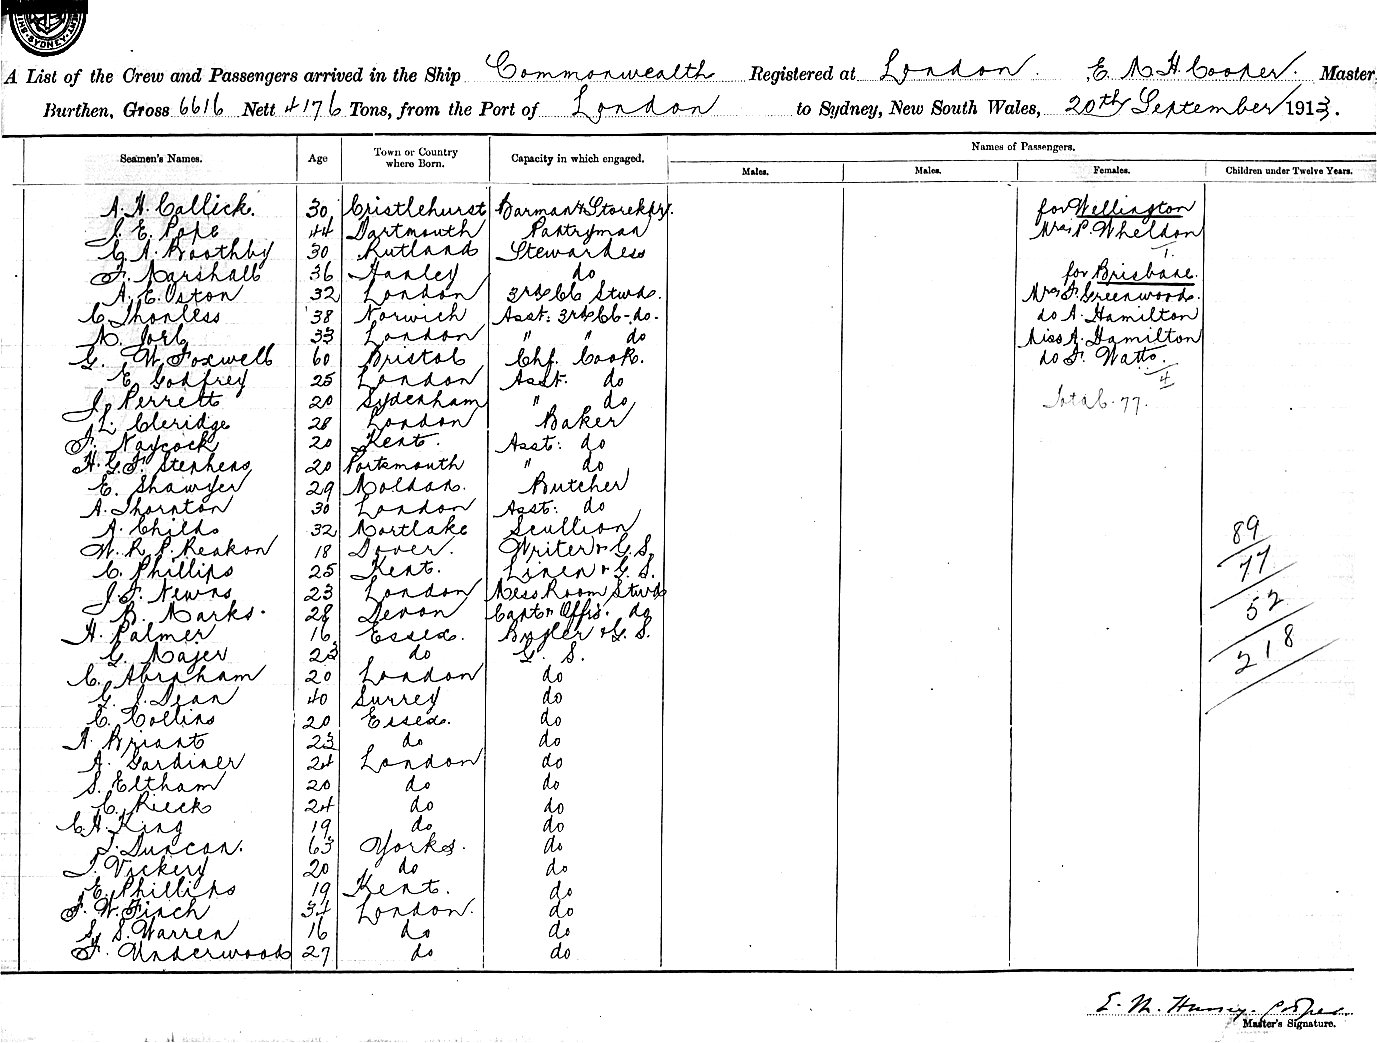 SYDNEY
A List of the Crew and Passengers arrived in the Ship Commonwealth Registered at London. E M H Cooper. Master
Burthen, Gross 6616 Nett 4176 Tons, from the Port of London to Sydney, New South Wales, 20th September 1913.
Seamen's Names. Age Town or Country where Born. Capacity in which engaged. Names of Passengers.
Males. Males. Females. Children under Twelve Years.
A. H. Callick. 30 Cristlehurst Barman & Storekpr. for Wellington
J. E. Pope 44 Dartmouth Pantryman Mrs P. Wheldon
C. A. Boothby 30 Rutland Stewardess 1.
F. Marshall 36 Hanley do for Brisbane.
A. E. Oston 32 London 3rd Cl Stwds. Mrs F. Greenwood.
C. Thonless 38 Norwich Asst: 3rd Cl - do. do A. Hamilton
M. 33 London " " do Miss A. Hamilton
G. W. Foxwell 60 Bristol Chf. Cook. do F. Watts.
E. Godfrey 25 London Asst. do 4
J. Perrett 20 Sydenham " do Total. 77.
L. Cleridge 28 London Baker
F. Naycock 20 Kent. Asst: do
H. G. F. Stephens 20 Portsmouth " do
E. Shawyer 29 Moldon. Butcher
A. Thornton 30 London Asst: do
A. Childs 32 Mortlake Scullion 89
W. R. P. Reakon 18 Dover. Writer & G. S. 77
C. Phillips 25 Kent. Linen & G. S.
J. F. Newns 23 London Mess Room Stwd 52
B. Marks. 28 Devon Capt & Offrs. do
H. Palmer 16 Essex. Bugler & G. S. 218
G. Majer 23 do G. S.
C. Abraham 20 London do
G. J. Dean 40 Surrey do
C. Collins 20 Essex. do
A. Briant 23 do do
A. Gardiner 24 London do
S. Eltham 20 do do
C. Rieck 24 do do
C. A. King 19 do do
J. Duncan. 63 Yorks. do
J. Vickery 20 do do
E. Phillips 19 Kent. do
F. W. Finch 34 London. do
S. S. Warren 16 do do
F. Underwood 27 do do
E. M. Cooper
Master's Signature.